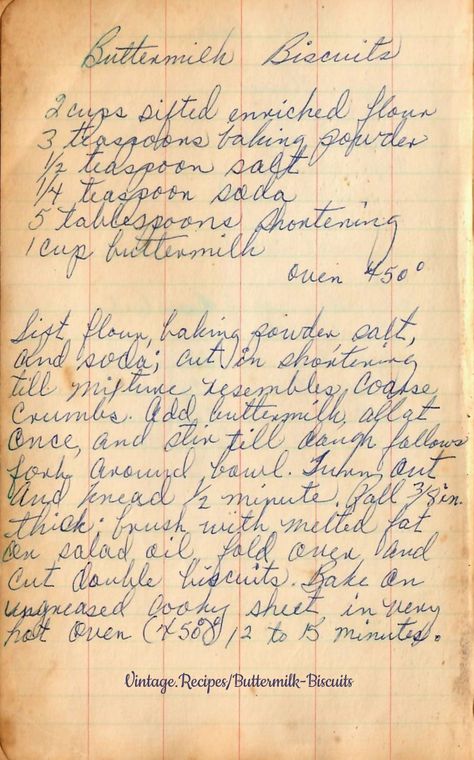 Buttermilk Biscuits
2 cups sifted enriched flour
3 teaspoons baking powder
1/2 teaspoon salt
1/4 teaspoon soda
5 tablespoons shortening
1 cup buttermilk
oven 450°
Sift flour, baking powder salt,
and soda; cut in shortening
till mixture resembles coarse
crumbs. Add buttermilk all at
once, and stir till dough follows
fork around bowl. Turn out
and knead 1/2 minute. Roll 3/8 in.
thick; brush with melted fat
or salad oil, fold over and
cut double biscuits. Bake on
ungreased cooky sheet in very
hot oven (450°) 12 to 15 minutes.
Vintage.Recipes/Buttermilk-Biscuits